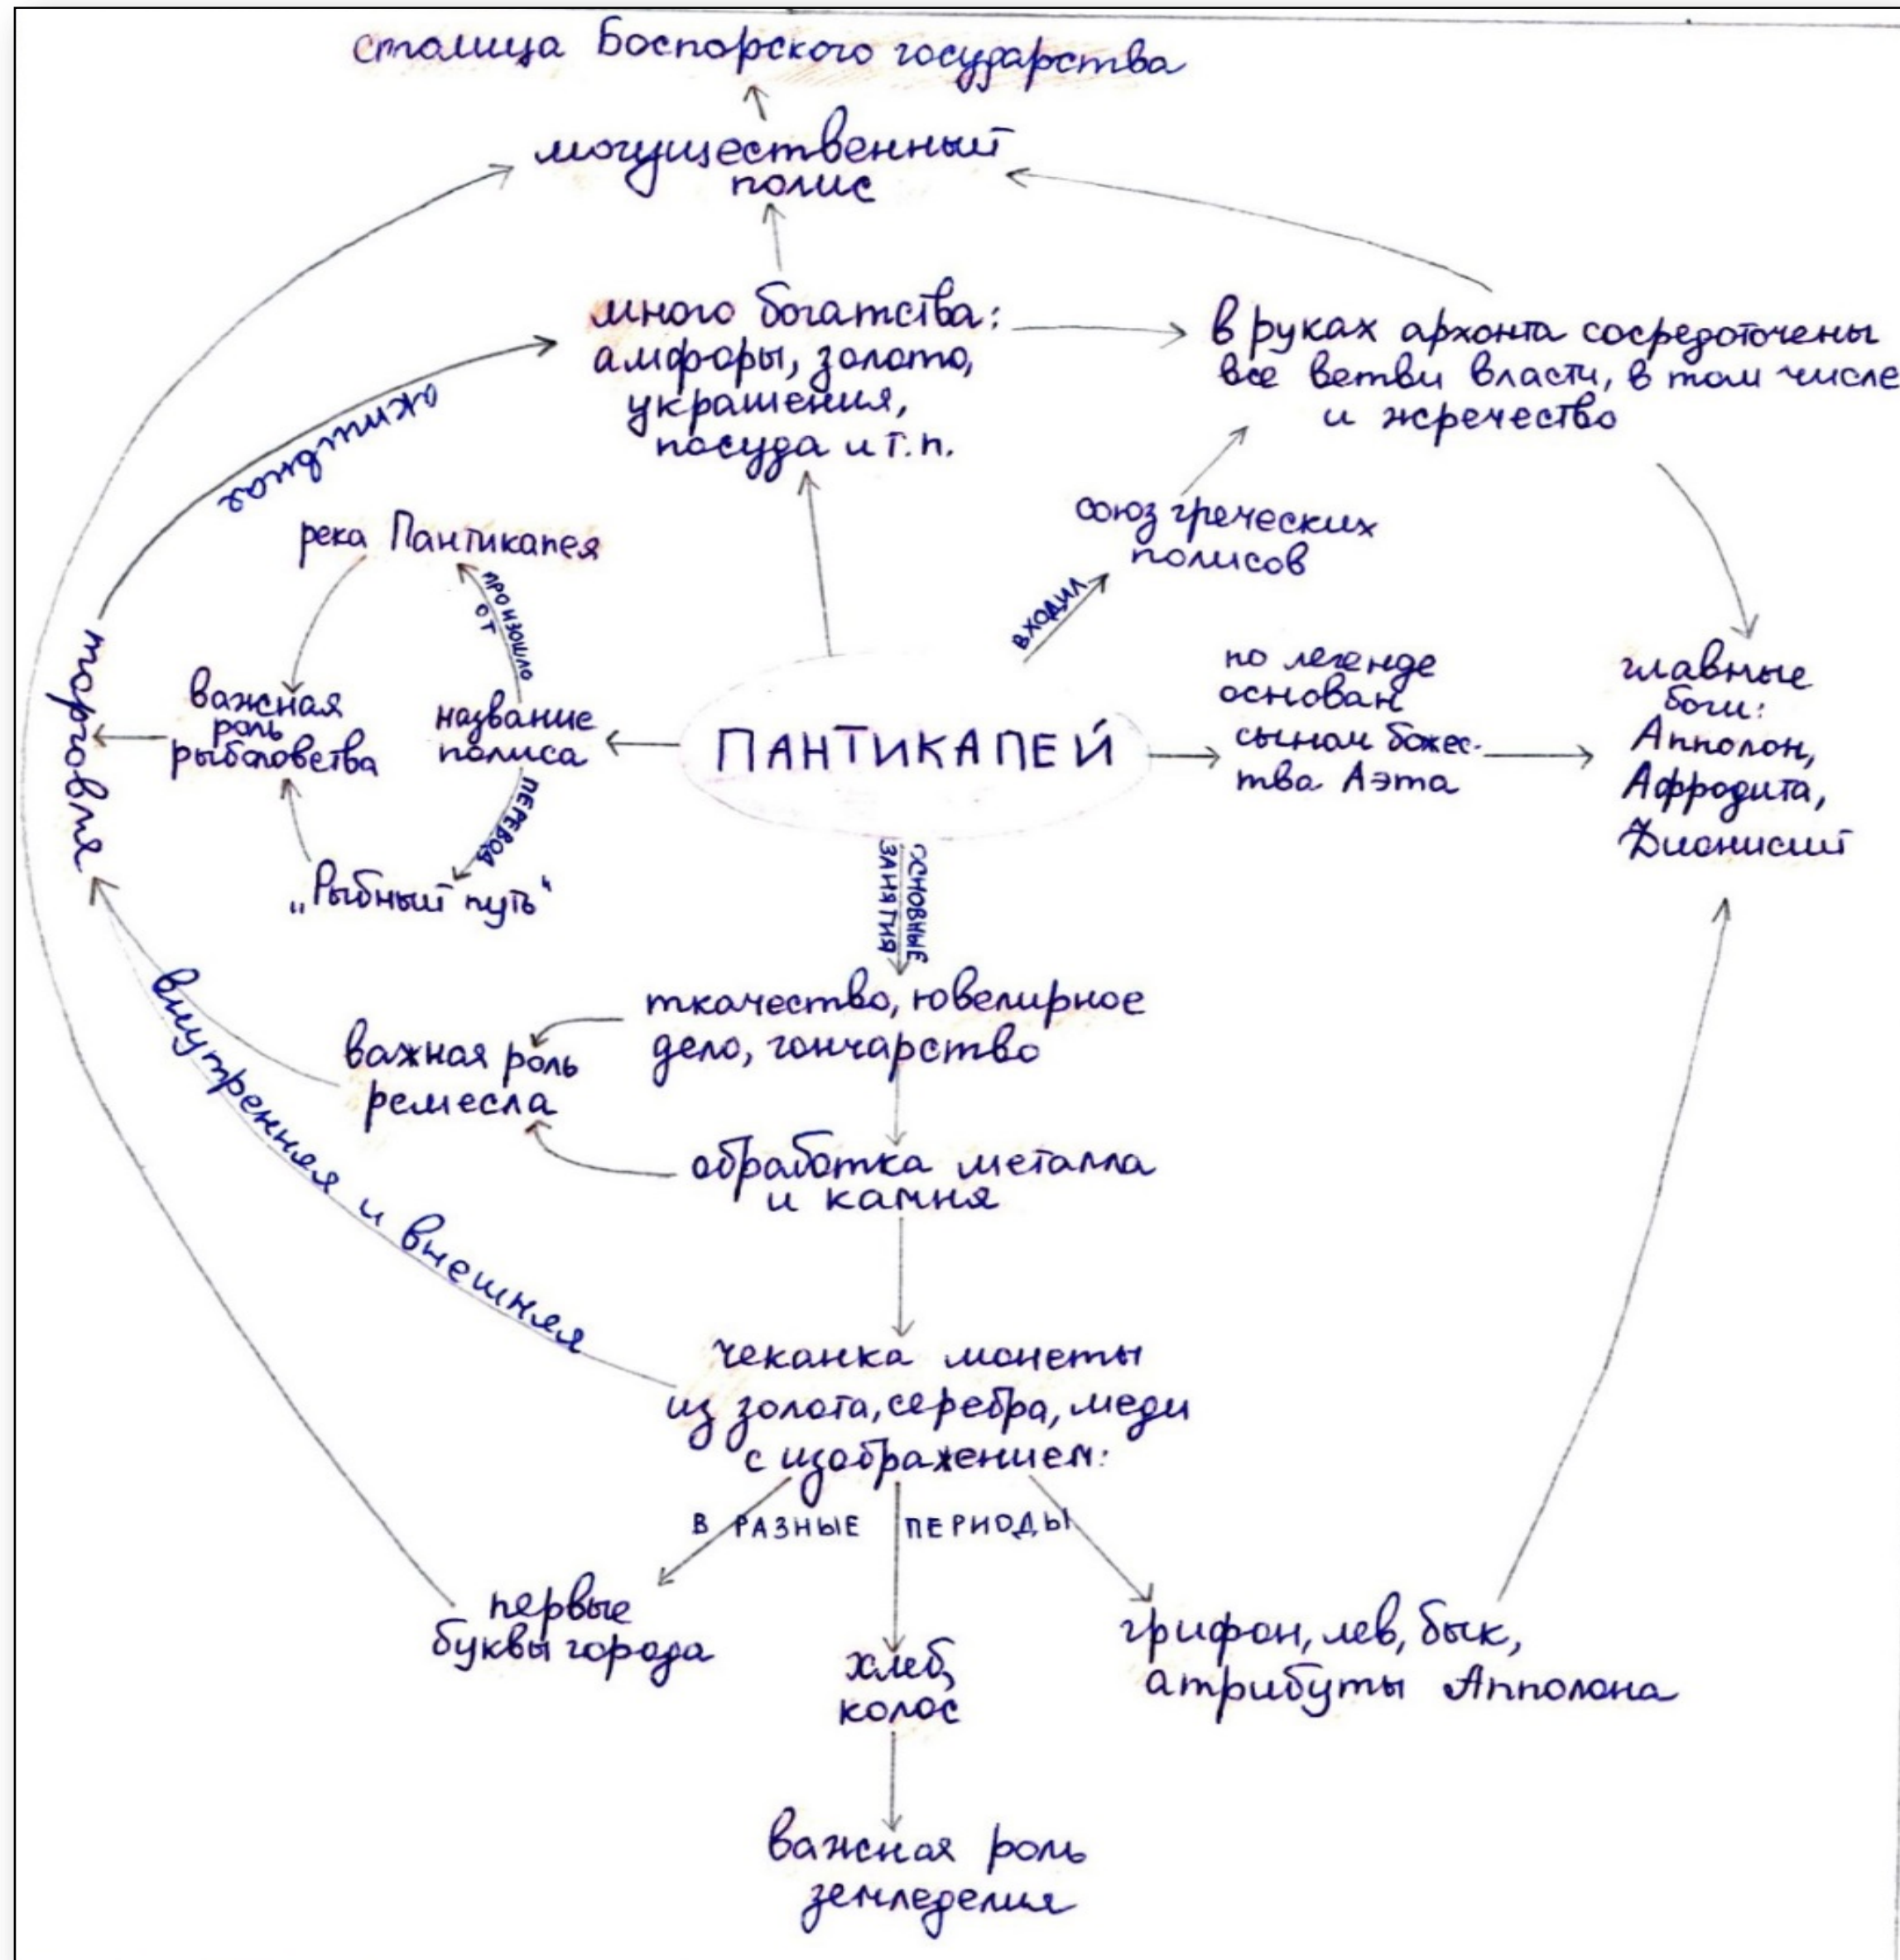 столица Боспорского государства
могущественный
полис
много богатства:
амфоры, золото,
украшения,
посуда и т.п.
в руках архонта сосредоточены
все ветви власти, в том числе
и жречество
активная
союз греческих
полисов
входил
река Пантикапея
произошло
от
важная
роль
рыболовства
название
полиса
перевод
„Рыбный путь“
торговля
ПАНТИКАПЕЙ
по легенде
основан
сыном божес-
тва Аэта
главные
боги:
Апполон,
Афродита,
Дионисий
ОСНОВНЫЕ
ЗАНЯТИЯ
ткачество, ювелирное
дело, гончарство
важная роль
ремесла
обработка металла
и камня
внутренняя и внешняя
чеканка монеты
из золота, серебра, меди
с изображением:
В РАЗНЫЕ ПЕРИОДЫ
первые
буквы города
хлеб,
колос
грифон, лев, бык,
атрибуты Апполона
важная роль
земледелия